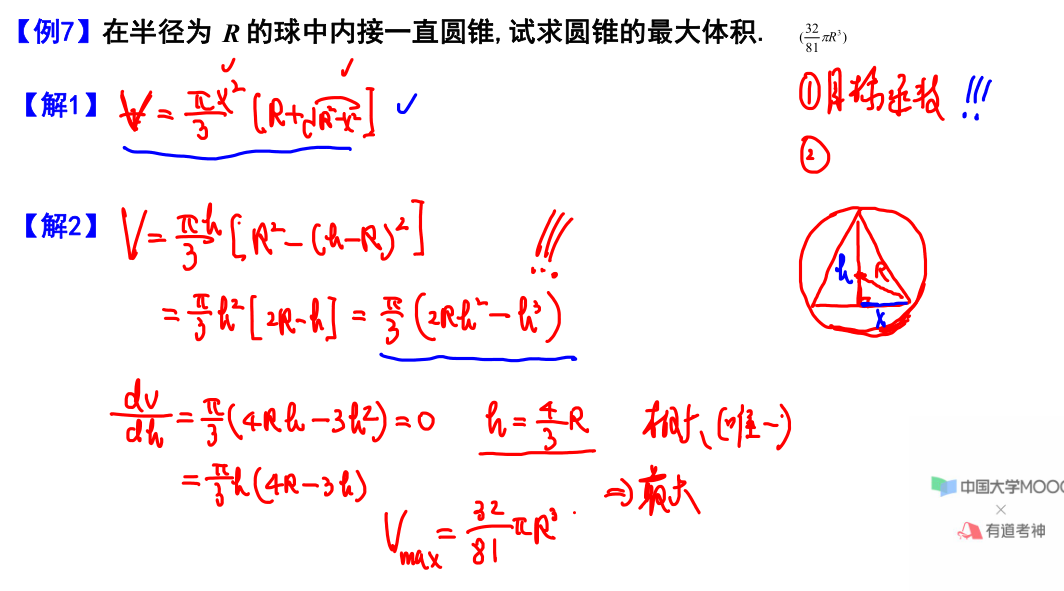 【例7】在半径为 R 的球中内接一直圆锥, 试求圆锥的最大体积. (32/81 πR³)
① 目标函数 !!!
【解1】 V = π/3 x² [R+√(R²-x²)] ✓
②
【解2】 V = πh/3 [R²-(h-R)²] !!!
= π/3 h² [2R-h] = π/3 (2Rh²-h³)
h R
x
dv/dh = π/3 (4Rh-3h²) = 0 h = 4/3 R 极大、(唯一)
= π/3 h(4R-3h) ⇒ 最大
V max = 32/81 πR³
中国大学MOOC
×
有道考神